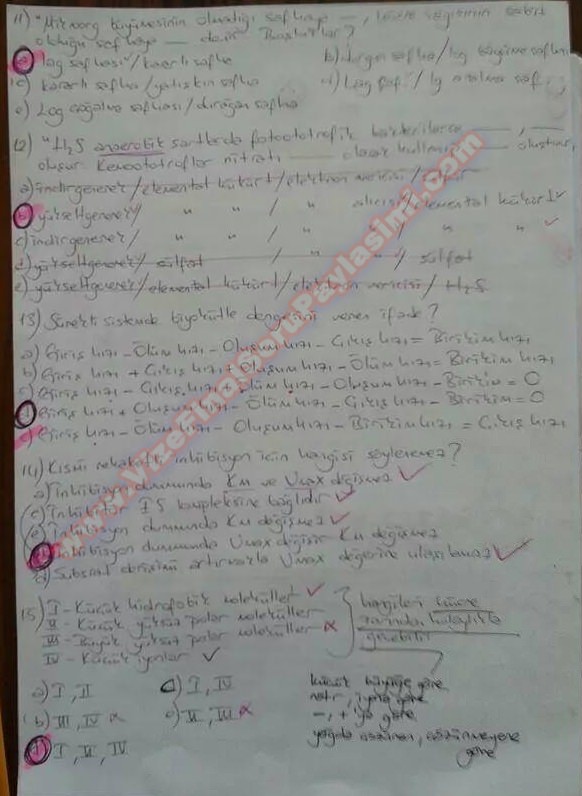 11) "Mikroorg büyümesinin olmadığı safhaya —, hücre sayısının sabit
olduğu safhaya — denir" Boşluklar?
a) lag safhası / kararlı safha
b) durgun safha / log büyüme safhası
c) kararlı safha / yatışkın safha
d) Lag saf. / lg azalma saf.
e) Log çoğalma safhası / durağan safha
12) "H₂S anaerobik şartlarda fotoototrofik bakterilerce —, —
oluşur. Kemoototroflar nitratı — olarak kullanır — oluşturur,
a) indirgenerek / elementel kükürt / elektron vericisi / sülfür
b) yükseltgenerek / " " / " alıcısı / elementel kükürt ✓
c) indirgenerek / " " / " " / " "
d) yükseltgenerek / sülfat / " " / sülfat
e) yükseltgenerek / elementel kükürt / elektron vericisi / H₂S
13) Sürekli sistemde biyokütle dengesini veren ifade?
a) Giriş hızı - Ölüm hızı - Oluşum hızı - Çıkış hızı = Birikim hızı
b) Giriş hızı + Çıkış hızı + Oluşum hızı - Ölüm hızı = Birikim hızı
c) Giriş hızı - Çıkış hızı + Ölüm hızı - Oluşum hızı - Birikim = 0
d) Giriş hızı + Oluşum hızı - Ölüm hızı - Çıkış hızı - Birikim = 0
e) Giriş hızı - Ölüm hızı - Oluşum hızı - Birikim hızı = Çıkış hızı
14) Kısmi rekabetli inhibisyon için hangisi söylenemez?
a) İnhibisyon durumunda Km ve Vmax değişmez ✓
c) İnhibitör IS kompleksine bağlıdır ✓
e) İnhibisyon durumunda Km değişmez ✓
İnhibisyon durumunda Vmax değişir Km değişmez
d) Substrat derişimi artırmakla Vmax değerine ulaşılamaz ✓
15) I - Küçük hidrofobik moleküller ✓
II - Küçük yüksüz polar moleküller
III - Büyük yüksüz polar moleküller x
IV - Küçük iyonlar ✓
hangileri hücre
zarından kolaylıkla
geçebilir?
a) I, II
c) I, IV
b) III, IV x
e) II, III x
d) I, II, IV
küçük büyüğe göre
nötr, iyona göre
-, + ya göre
yağda çözünen, çözünmeyene
göre
www.VizeFinalSoruPaylasimi.com